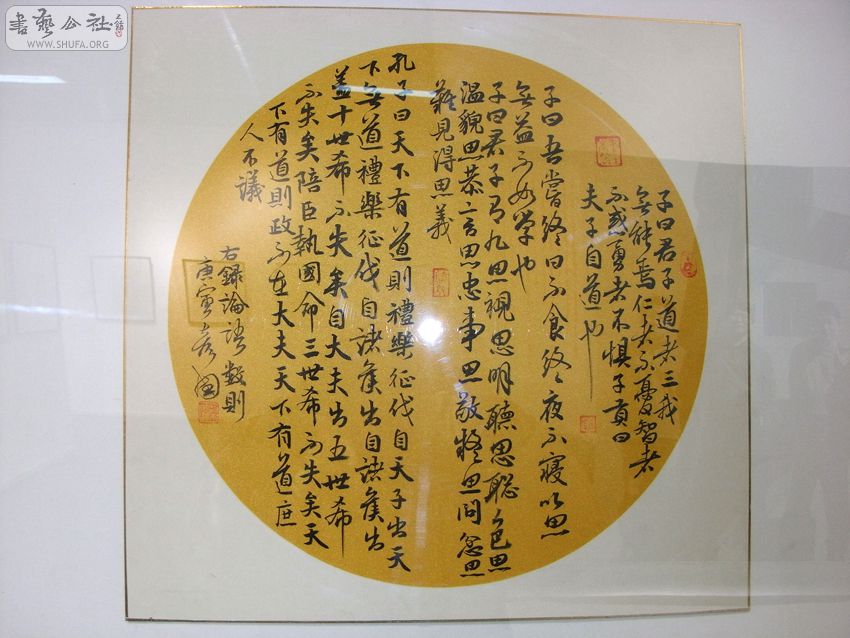 書藝公社
WWW.SHUFA.ORG
子曰君子道者三我
無能焉仁者不憂智者
不惑勇者不懼子貢曰
夫子自道也
子曰吾嘗終日不食終夜不寢以思
無益不如學也
子曰君子有九思視思明聽思聰色思
溫貌思恭言思忠事思敬疑思問忿思
難見得思義
孔子曰天下有道則禮樂征伐自天子出天
下無道禮樂征伐自諸侯出自諸侯出
蓋十世希不失矣自大夫出五世希
不失矣陪臣執國命三世希不失矣天
下有道則政不在大夫天下有道庶
人不議
右錄論語數則
庚寅